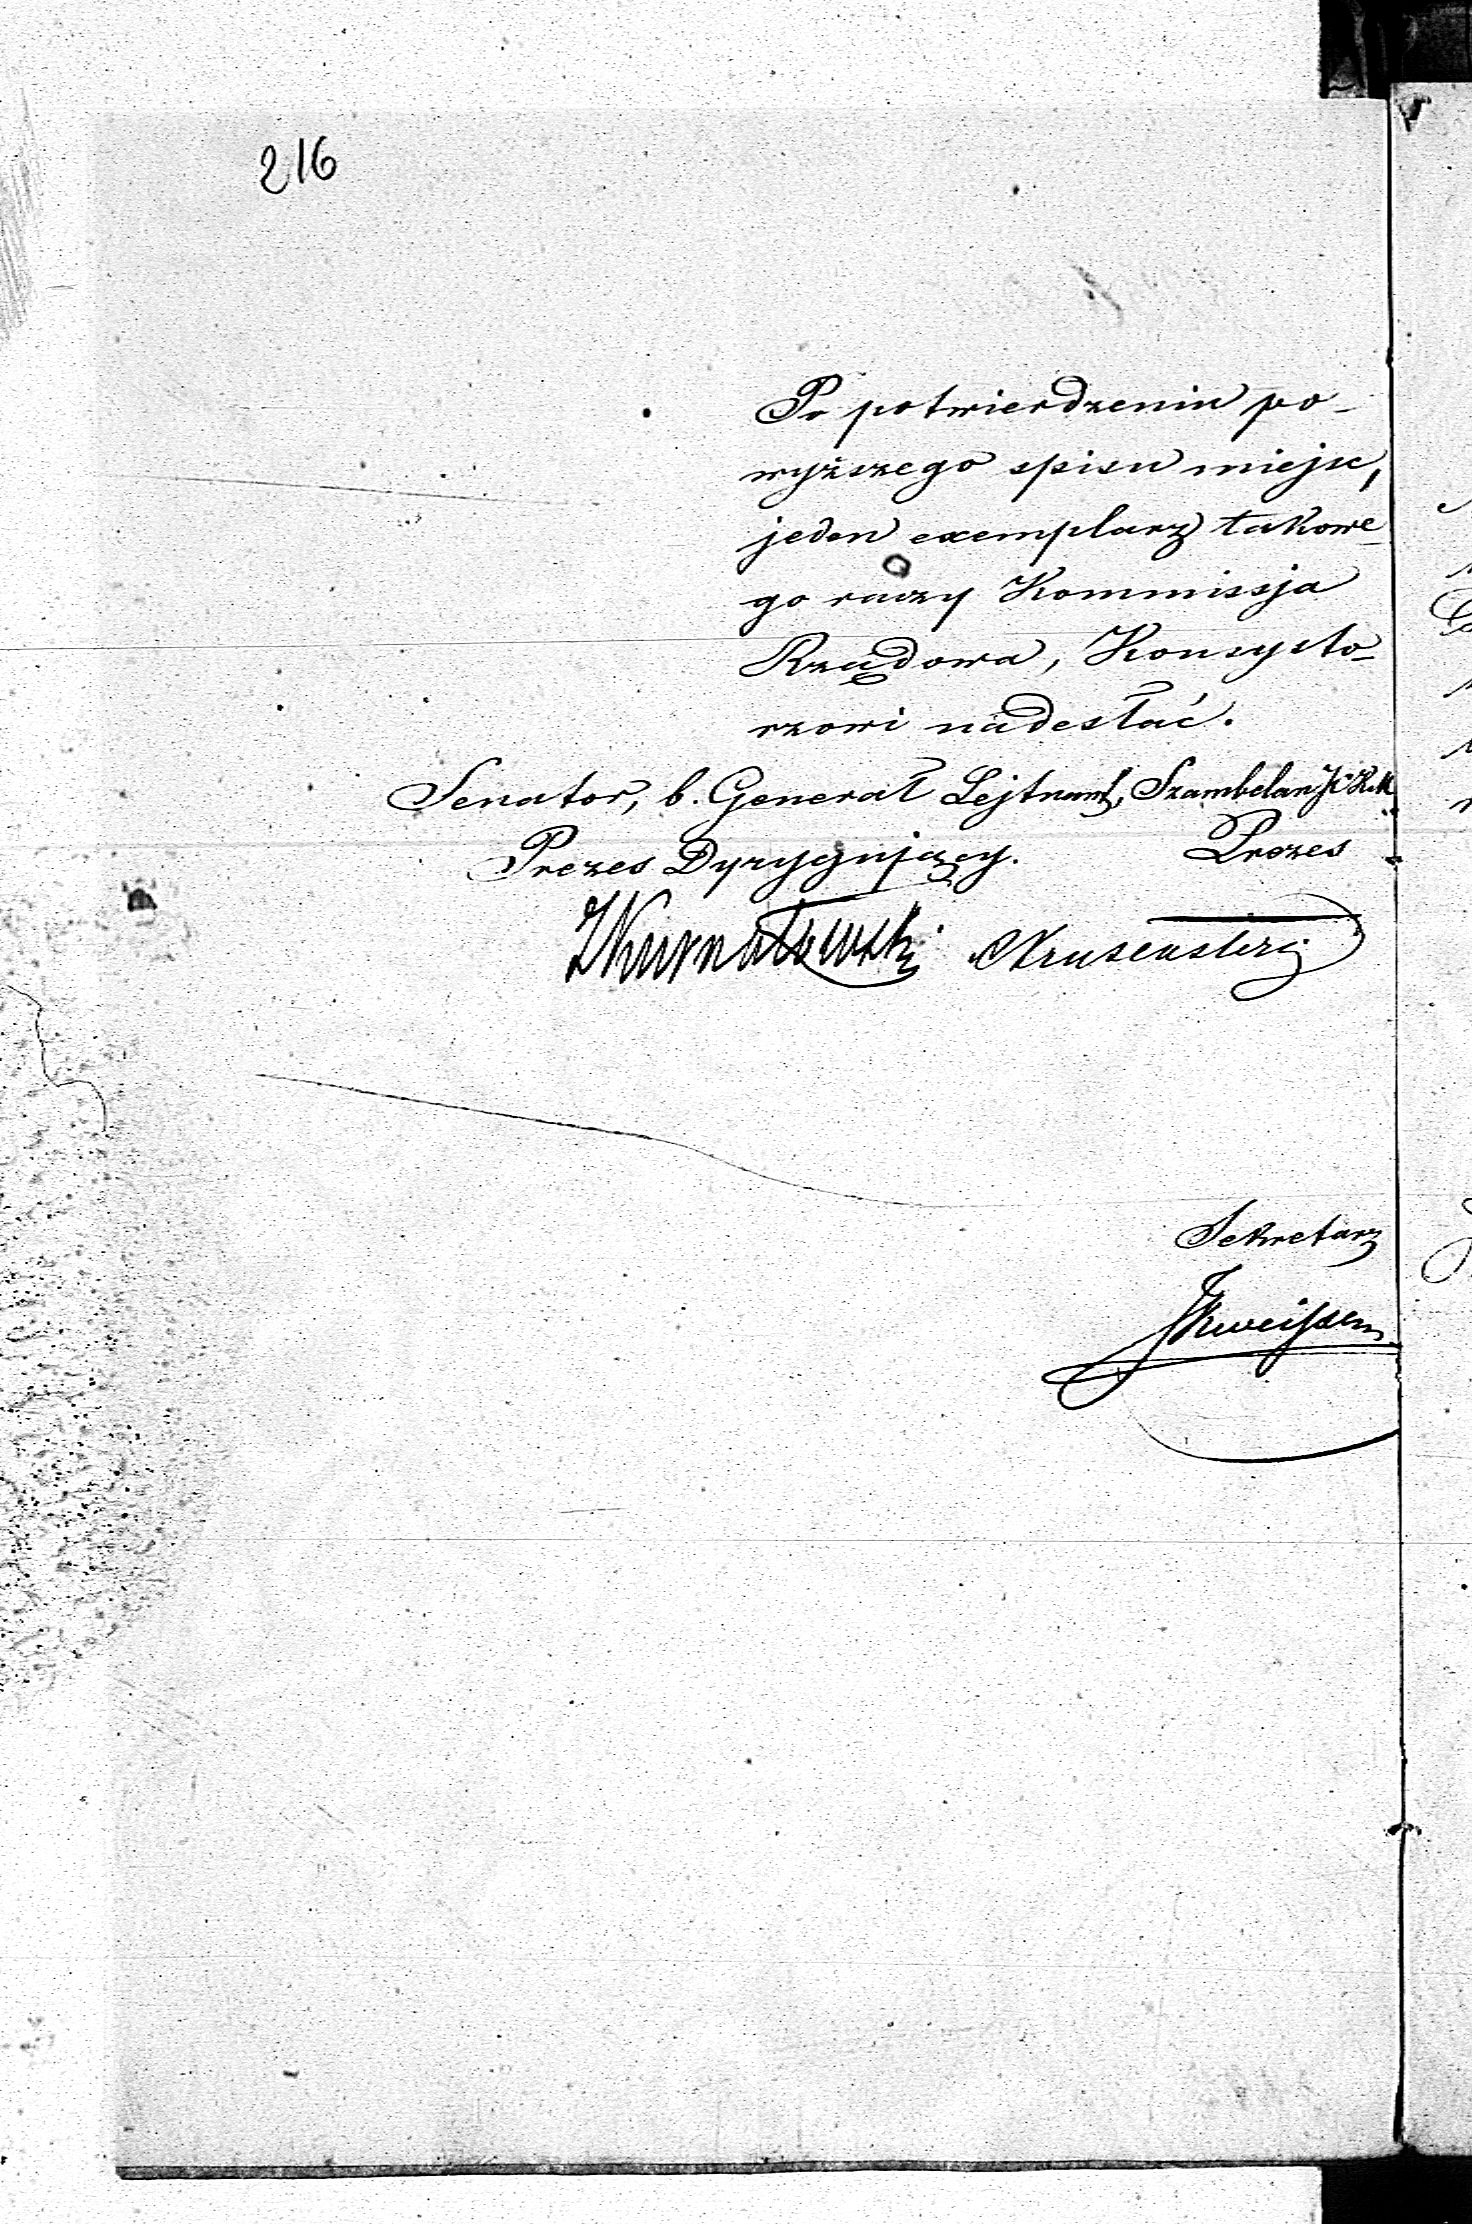 216
Po potwierdzeniu po-
wyższego spisu miejsc,
jeden exemplarz takowe-
go raczy Kommissja
Rządowa, Konsysto-
rzowi nadesłać.
Senator, b. Generał Lejtnant, Szambelan
Prezes Dyrygujący. Prezes
JKurnatowski Krusenstern
Sekretarz